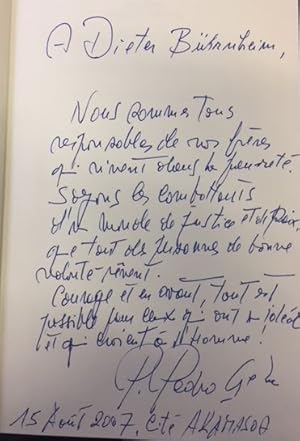 A Dieter Bührnheim,
Nous sommes Tous
responsables de nos frères
qui vivent dans la pauvreté.
Soyons les combattants
d'un monde de Justice et de Paix,
que tant de personnes de bonne
volonté rêvent.
Courage et en avant, Tout est
possible pour ceux qui ont un idéal
et qui croient à l'Homme !
P. Pedro
15 Août 2007, Cité AKAMASOA